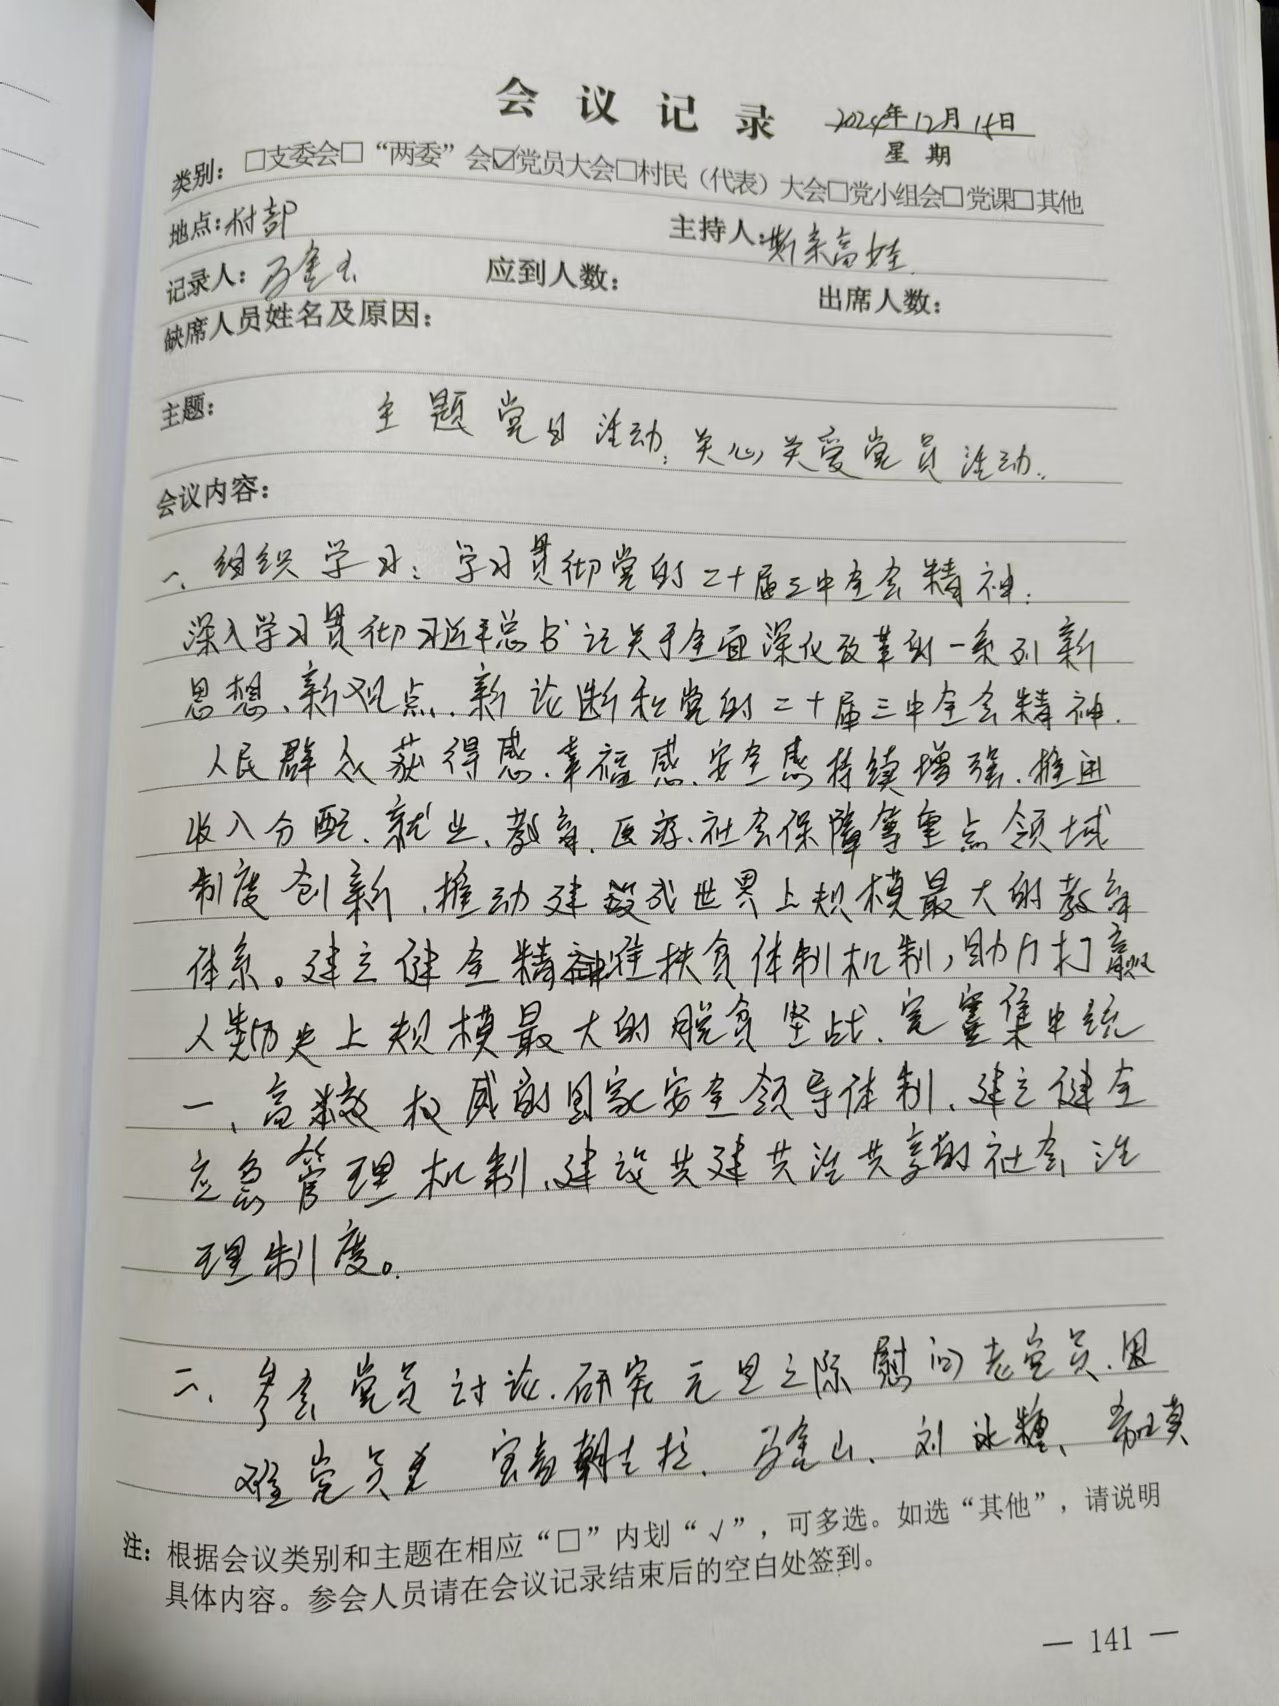 会议记录
2024年12月15日
星期
类别：□支委会□“两委”会☑党员大会□村民（代表）大会□党小组会□党课□其他
地点：村部 主持人：斯亲高娃
记录人： 应到人数： 出席人数：
缺席人员姓名及原因：
主题： 主题党日活动；关心关爱党员活动.
会议内容：
一、组织学习：学习贯彻党的二十届三中全会精神：
深入学习贯彻习近平总书记关于全面深化改革的一系列新
思想、新观点、新论断和党的二十届三中全会精神.
人民群众获得感、幸福感、安全感持续增强、推进
收入分配、就业、教育、医疗、社会保障等重点领域
制度创新，推动建设成世界上规模最大的教育
体系。建立健全精准扶贫体制机制，助力打赢
人类历史上规模最大的脱贫坚战、完善集中统
一、高效权威的国家安全领导体制、建立健全
应急管理机制、建设共建共治共享的社会治
理制度。
二、参会党员讨论、研究元旦之际慰问老党员、困
难党员 宝音朝古拉、 刘
注：根据会议类别和主题在相应“□”内划“√”，可多选。如选“其他”，请说明
具体内容。参会人员请在会议记录结束后的空白处签到。
— 141 —